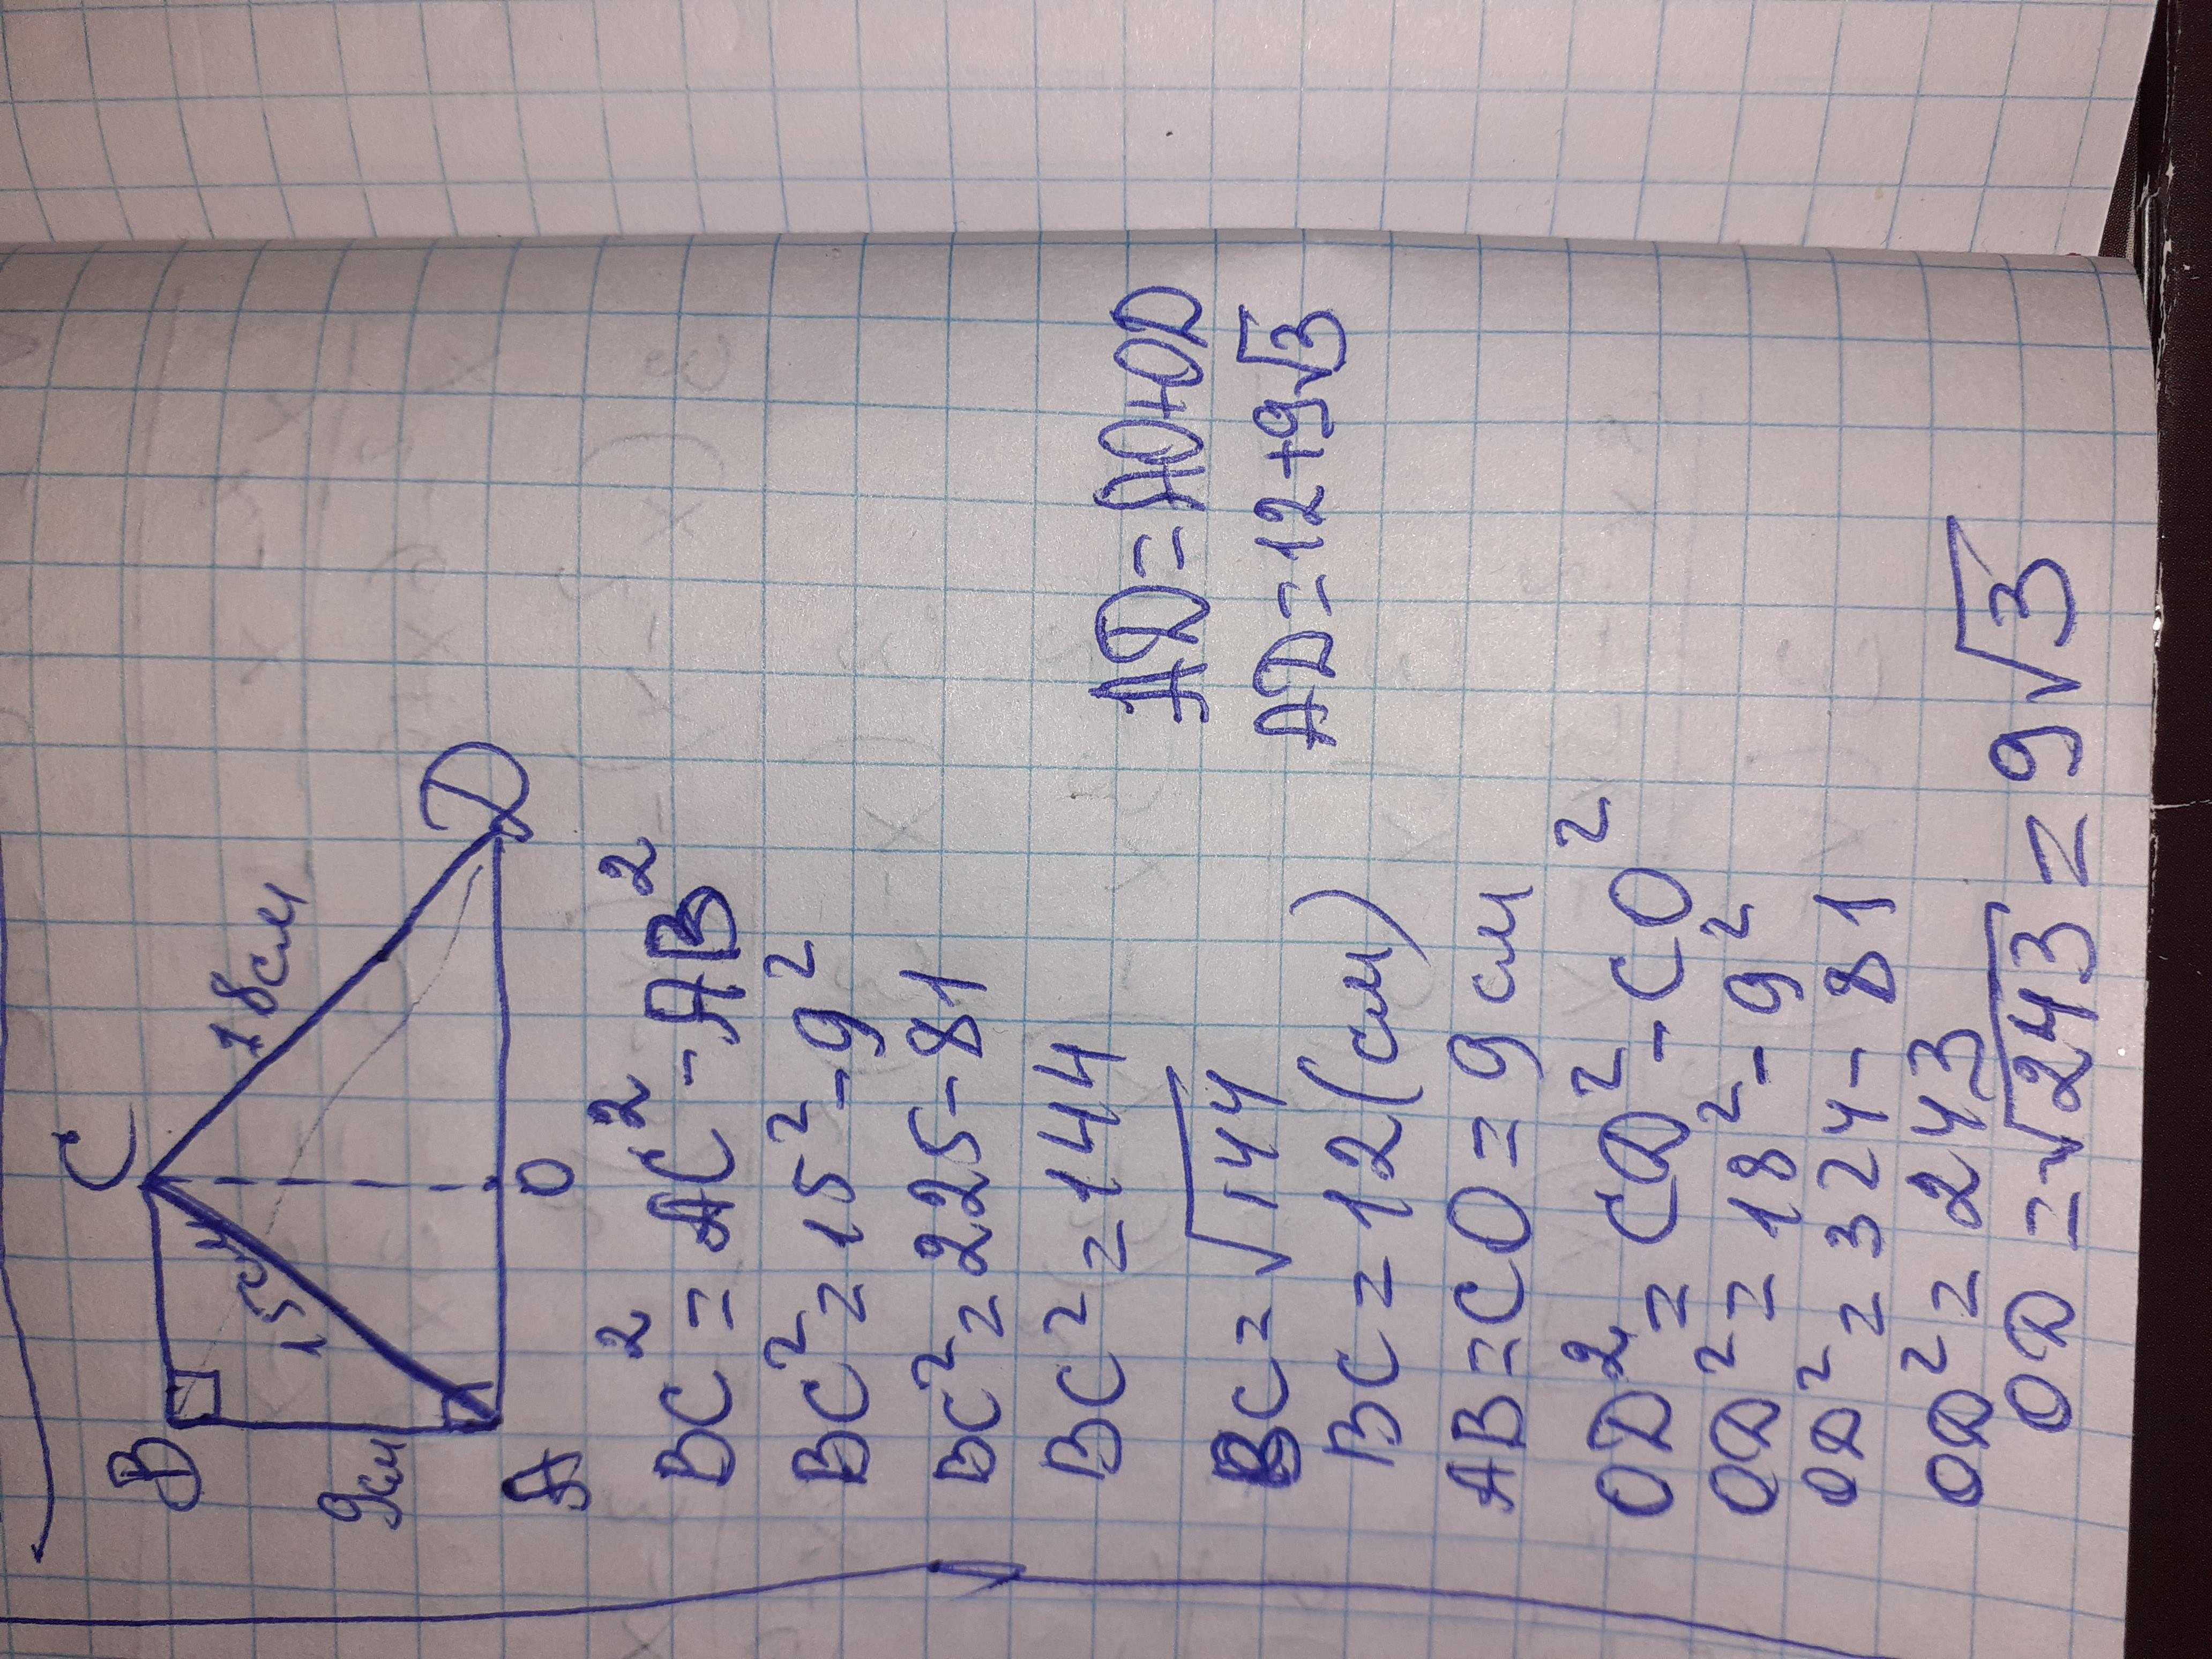 B
C
9см
15см
18см
A
O
D
BC² = AC² - AB²
BC² = 15² - 9²
BC² = 225 - 81
BC² = 144
BC = √144
BC = 12 (см)
AB = CO = 9 см
OD² = CD² - CO²
OD² = 18² - 9²
OD² = 324 - 81
OD² = 243
OD = √243 = 9√3
AD = AO + OD
AD = 12 + 9√3